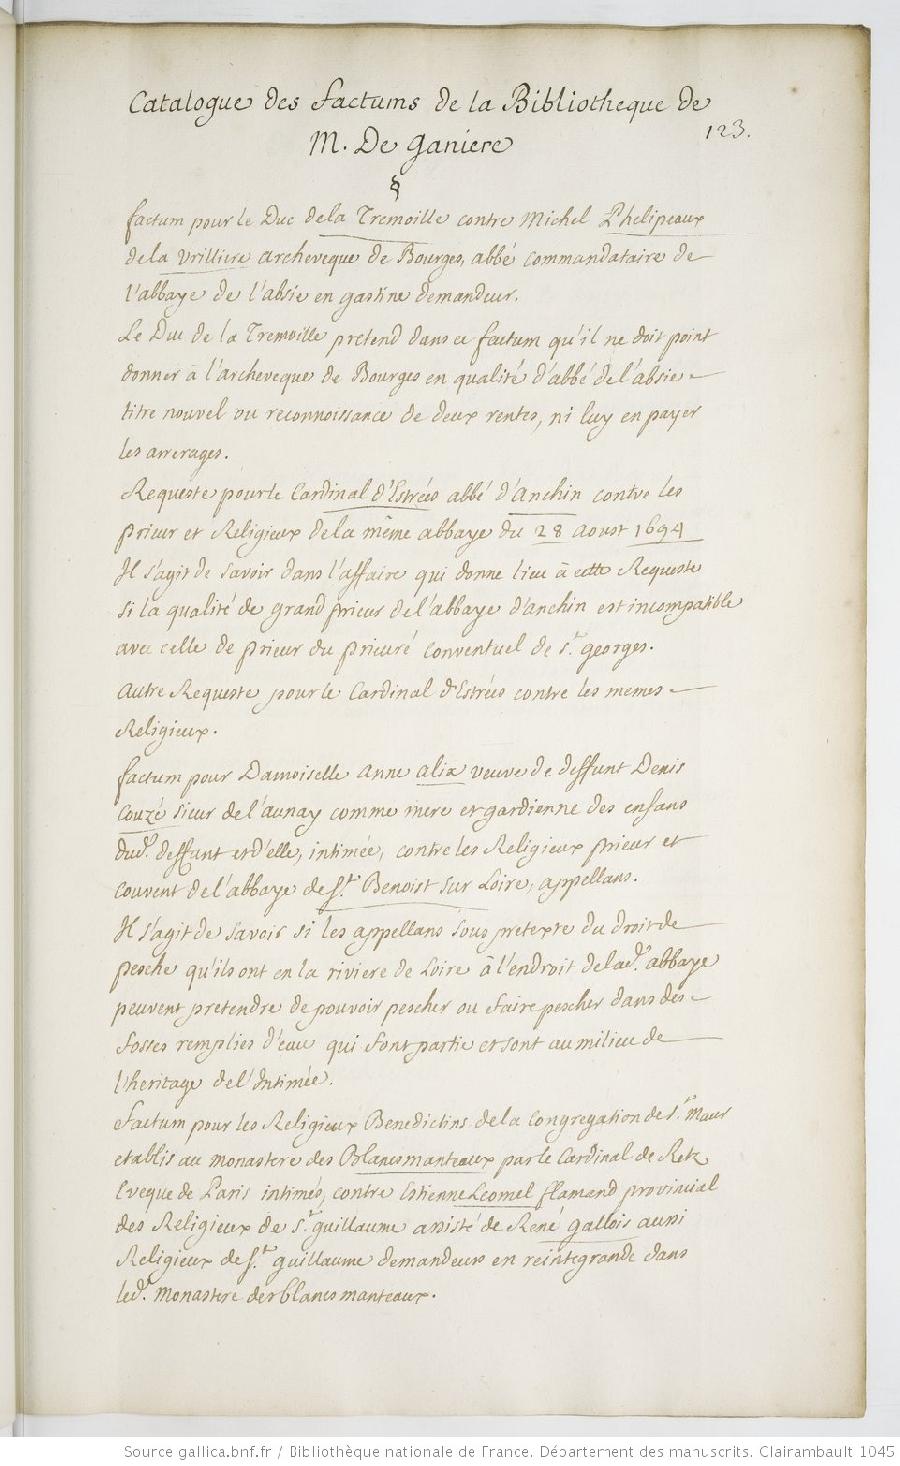 Catalogue des factums de la Bibliotheque de
M. De Ganiere
123.
§
factum pour le Duc de la Tremoille contre Michel Phelipeaux
de la Vrilliere archeveque de Bourges, abbé commandataire de
l'abbaye de l'absie en gastine demandeur.
Le Duc de la Tremoille pretend dans ce factum qu'il ne doit point
donner à l'archeveque de Bourges en qualité d'abbé de l'absie
titre nouvel ou reconnoissance de deux rentes, ni luy en payer
les arrerages.
Requeste pour le Cardinal d'Estrées abbé d'anchin contre les
prieur et Religieux de la même abbaye du 28 aoust 1694
Il s'agit de savoir dans l'affaire qui donne lieu à cette Requeste
si la qualité de grand prieur de l'abbaye d'anchin est incompatible
avec celle de prieur du prieuré conventuel de st. georges.
autre Requeste pour le Cardinal d'Estrées contre les memes
Religieux.
factum pour Damoiselle anne alix veuve de deffunt Denis
Couzé sieur de l'aunay comme mere et gardienne des enfans
dud. deffunt et d'elle, intimée, contre les Religieux prieur et
couvent de l'abbaye de St. Benoist sur Loire, appellans.
Il s'agit de savoir si les appellans sous pretexte du droit de
pesche qu'ils ont en la riviere de Loire à l'endroit de lad. abbaye
peuvent pretendre de pouvoir pescher ou faire pescher dans des
fosses remplies d'eau qui font partie et sont au milieu de
l'heritage de l'Intimée.
factum pour les Religieux Benedictins de la congregation de st. Maur
etablis au monastere des Blancsmanteaux par le Cardinal de Retz
Eveque de Paris intimés, contre Estienne Leomel flamand provincial
des Religieux de st. guillaume assisté de René gallois aussi
Religieux de St. guillaume demandeurs en reintegrande dans
led. monastere des blancs manteaux.
Source gallica.bnf.fr / Bibliothèque nationale de France. Département des manuscrits. Clairambault 1045